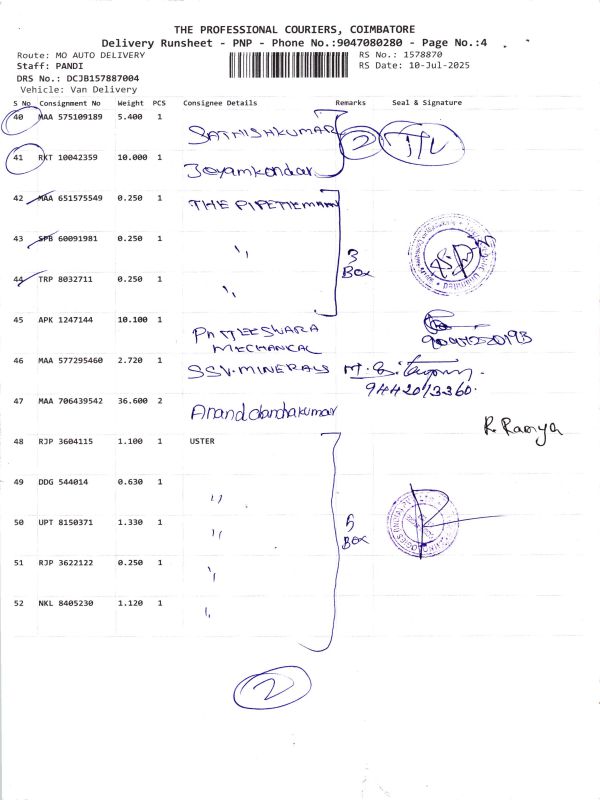 THE PROFESSIONAL COURIERS, COIMBATORE
Delivery Runsheet - PNP - Phone No.:9047080280 - Page No.:4
Route: MO AUTO DELIVERY RS No.: 1578870
Staff: PANDI RS Date: 10-Jul-2025
DRS No.: DCJB157887004
Vehicle: Van Delivery
S No Consignment No Weight PCS Consignee Details Remarks Seal & Signature
40 MAA 575109189 5.400 1 SATHISHKUMAR 2
41 RKT 10042359 10.000 1 Jayamkondar
42 MAA 651575549 0.250 1 THE PIPETTEMANN
43 SPB 60091981 0.250 1 ,, 3
BOX
44 TRP 8032711 0.250 1 ,,
45 APK 1247144 10.100 1 PATTEESWARA
MECHANICAL
46 MAA 577295460 2.720 1 SSV. MINERALS
9442013360.
47 MAA 706439542 36.600 2 Anandchandrakumar
R. Ramya
48 RJP 3604115 1.100 1 USTER
49 DDG 544014 0.630 1 ,,
50 UPT 8150371 1.330 1 ,, 5
BOX
51 RJP 3622122 0.250 1 ,,
52 NKL 8405230 1.120 1 ,,
2